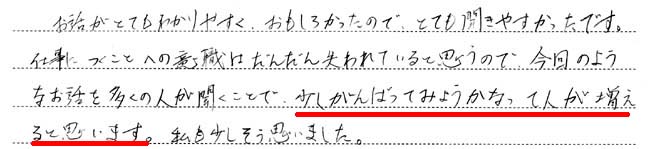 お話がとてもわかりやすく、おもしろかったので、とても聞きやすかったです。
仕事につくことへの意識はだんだん失われていると思うので、今回のよう
なお話を多くの人が聞くことで、少しがんばってみようかなって人が増え
ると思います。私も少しそう思いました。